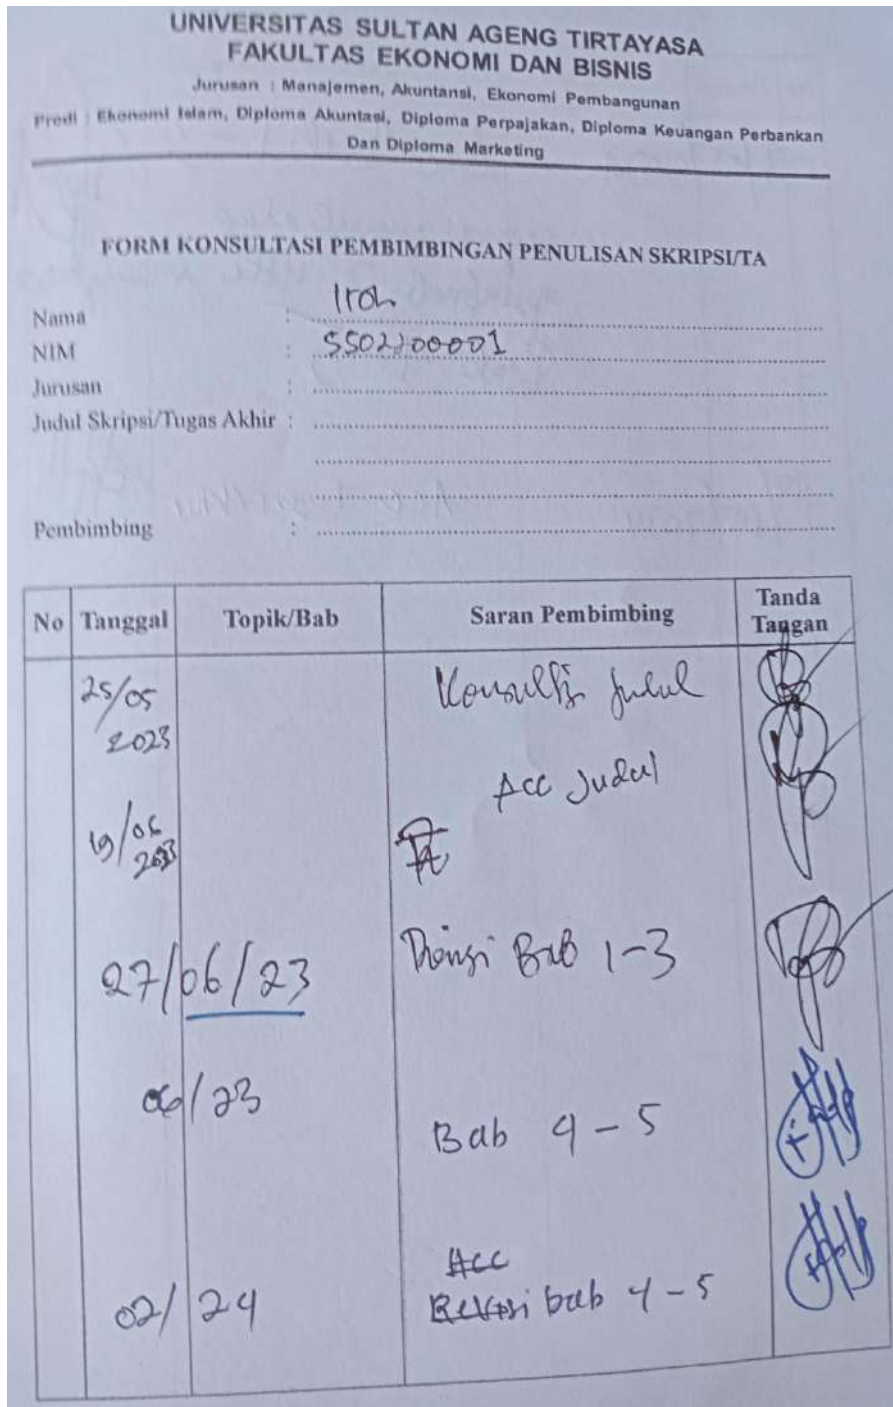 UNIVERSITAS SULTAN AGENG TIRTAYASA
FAKULTAS EKONOMI DAN BISNIS
Jurusan : Manajemen, Akuntansi, Ekonomi Pembangunan
Prodi : Ekonomi Islam, Diploma Akuntasi, Diploma Perpajakan, Diploma Keuangan Perbankan
Dan Diploma Marketing
FORM KONSULTASI PEMBIMBINGAN PENULISAN SKRIPSI/TA
Nama : Iroh
NIM : 5502200001
Jurusan :
Judul Skripsi/Tugas Akhir :
Pembimbing :
No Tanggal Topik/Bab Saran Pembimbing Tanda Tangan
25/05 2023 Judul
19/06 2023 Acc Judul
27/06/23 Bab 1-3
06/23 Bab 4-5
Acc
02/24 Revisi bab 4-5